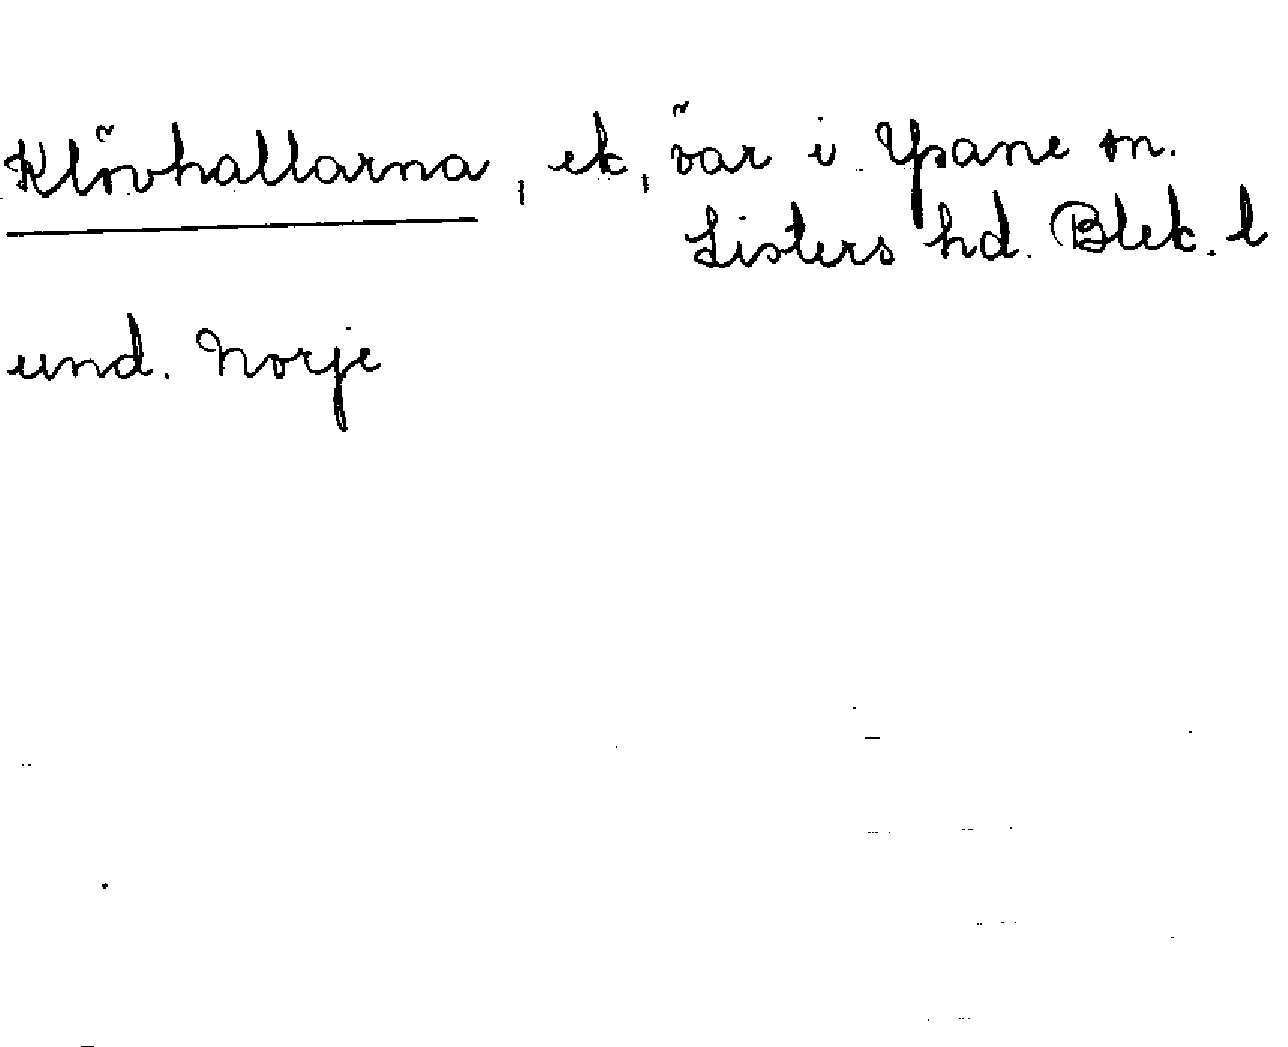 Klövhallarna, ek, öar i Ysane sn.
Listers hd. Blek. l
und. Norje